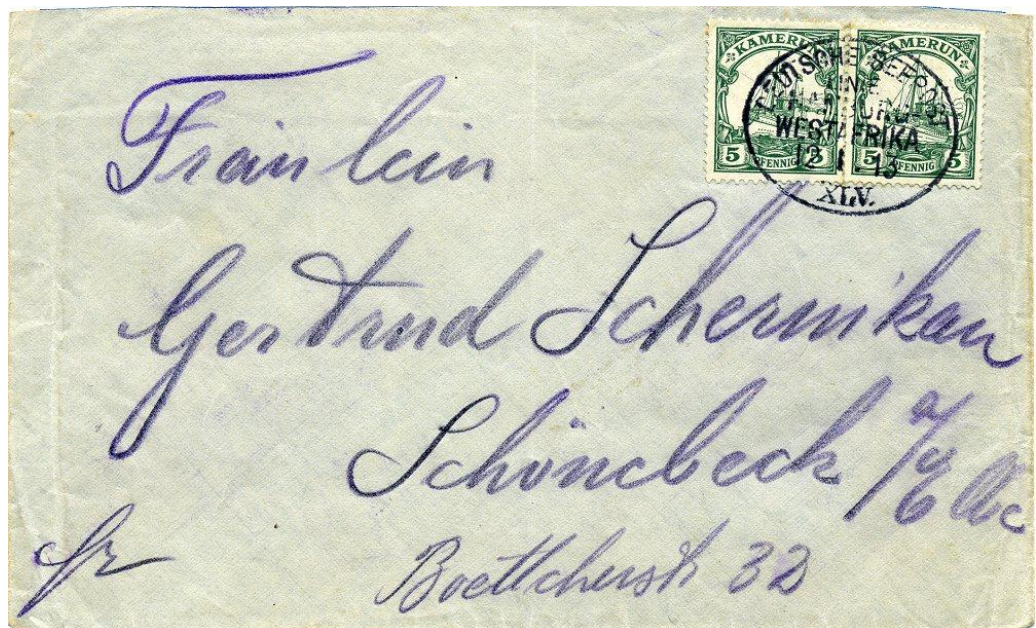 KAMERUN KAMERUN
5 PFENNIG 5 5 PFENNIG 5
DEUTSCHE SEEPOST
LINIE
HAMBURG-
WESTAFRIKA
12 1. 13
XLV.
Fräulein
Gertrud Schernikau
Schönebeck a/Elbe
Boettcherstr 32